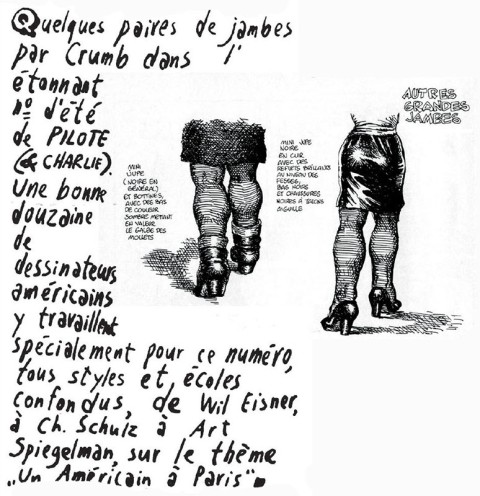 Quelques paires de jambes
par Crumb dans l'
étonnant
no d'été
de PILOTE
(& CHARLIE).
Une bonne
douzaine
de
dessinateurs
américains
y travaillent
spécialement pour ce numéro,
tous styles et écoles
confondus, de Wil Eisner,
à Ch. Schulz à Art
Spiegelman, sur le thème
"Un Américain à Paris"
MINI
JUPE
(NOIRE EN
GÉNÉRAL)
ET BOTTINES,
AVEC DES BAS
DE COULEUR
SOMBRE METTANT
EN VALEUR
LE GALBE DES
MOLLETS
MINI JUPE
NOIRE
EN CUIR
AVEC DES
REFLETS BRILLANTS
AU NIVEAU DES
FESSES,
BAS NOIRS
ET CHAUSSURES
NOIRES À TALONS
AIGUILLE
AUTRES
GRANDES
JAMBES